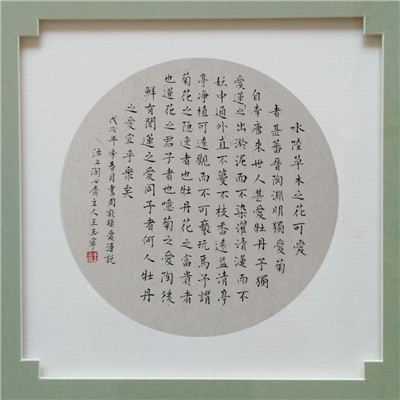 水陸草木之花可愛
者甚蕃晉陶淵明獨愛菊
自李唐來世人甚愛牡丹予獨
愛蓮之出淤泥而不染濯清漣而不
妖中通外直不蔓不枝香遠益清亭
亭淨植可遠觀而不可褻玩焉予謂
菊花之隱逸者也牡丹花之富貴者
也蓮花之君子者也噫菊之愛陶後
鮮有聞蓮之愛同予者何人牡丹
之愛宜乎眾矣
戊戌年季春月書周敦頤愛蓮說
上齋主人王玉